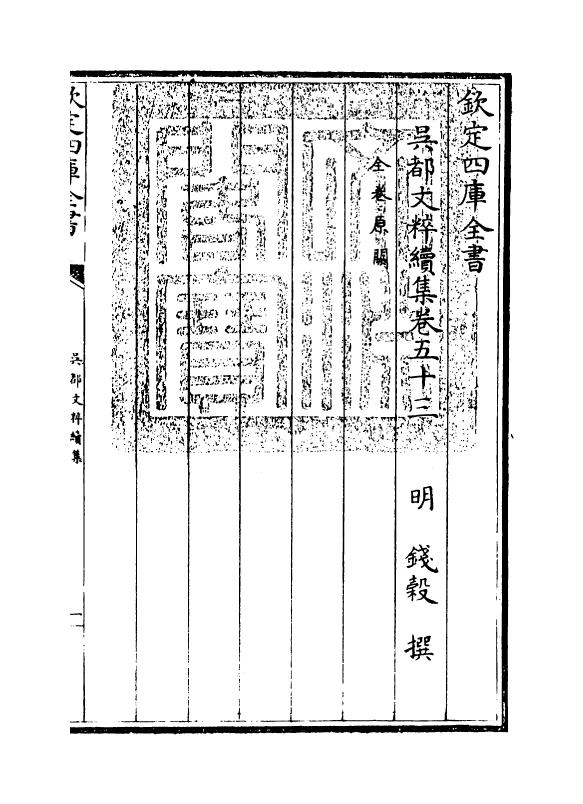 欽定四庫全書
吳都文粹續集卷五十三
明 錢榖 撰
全卷原闕
欽定四庫全書
吳都文粹續集
一